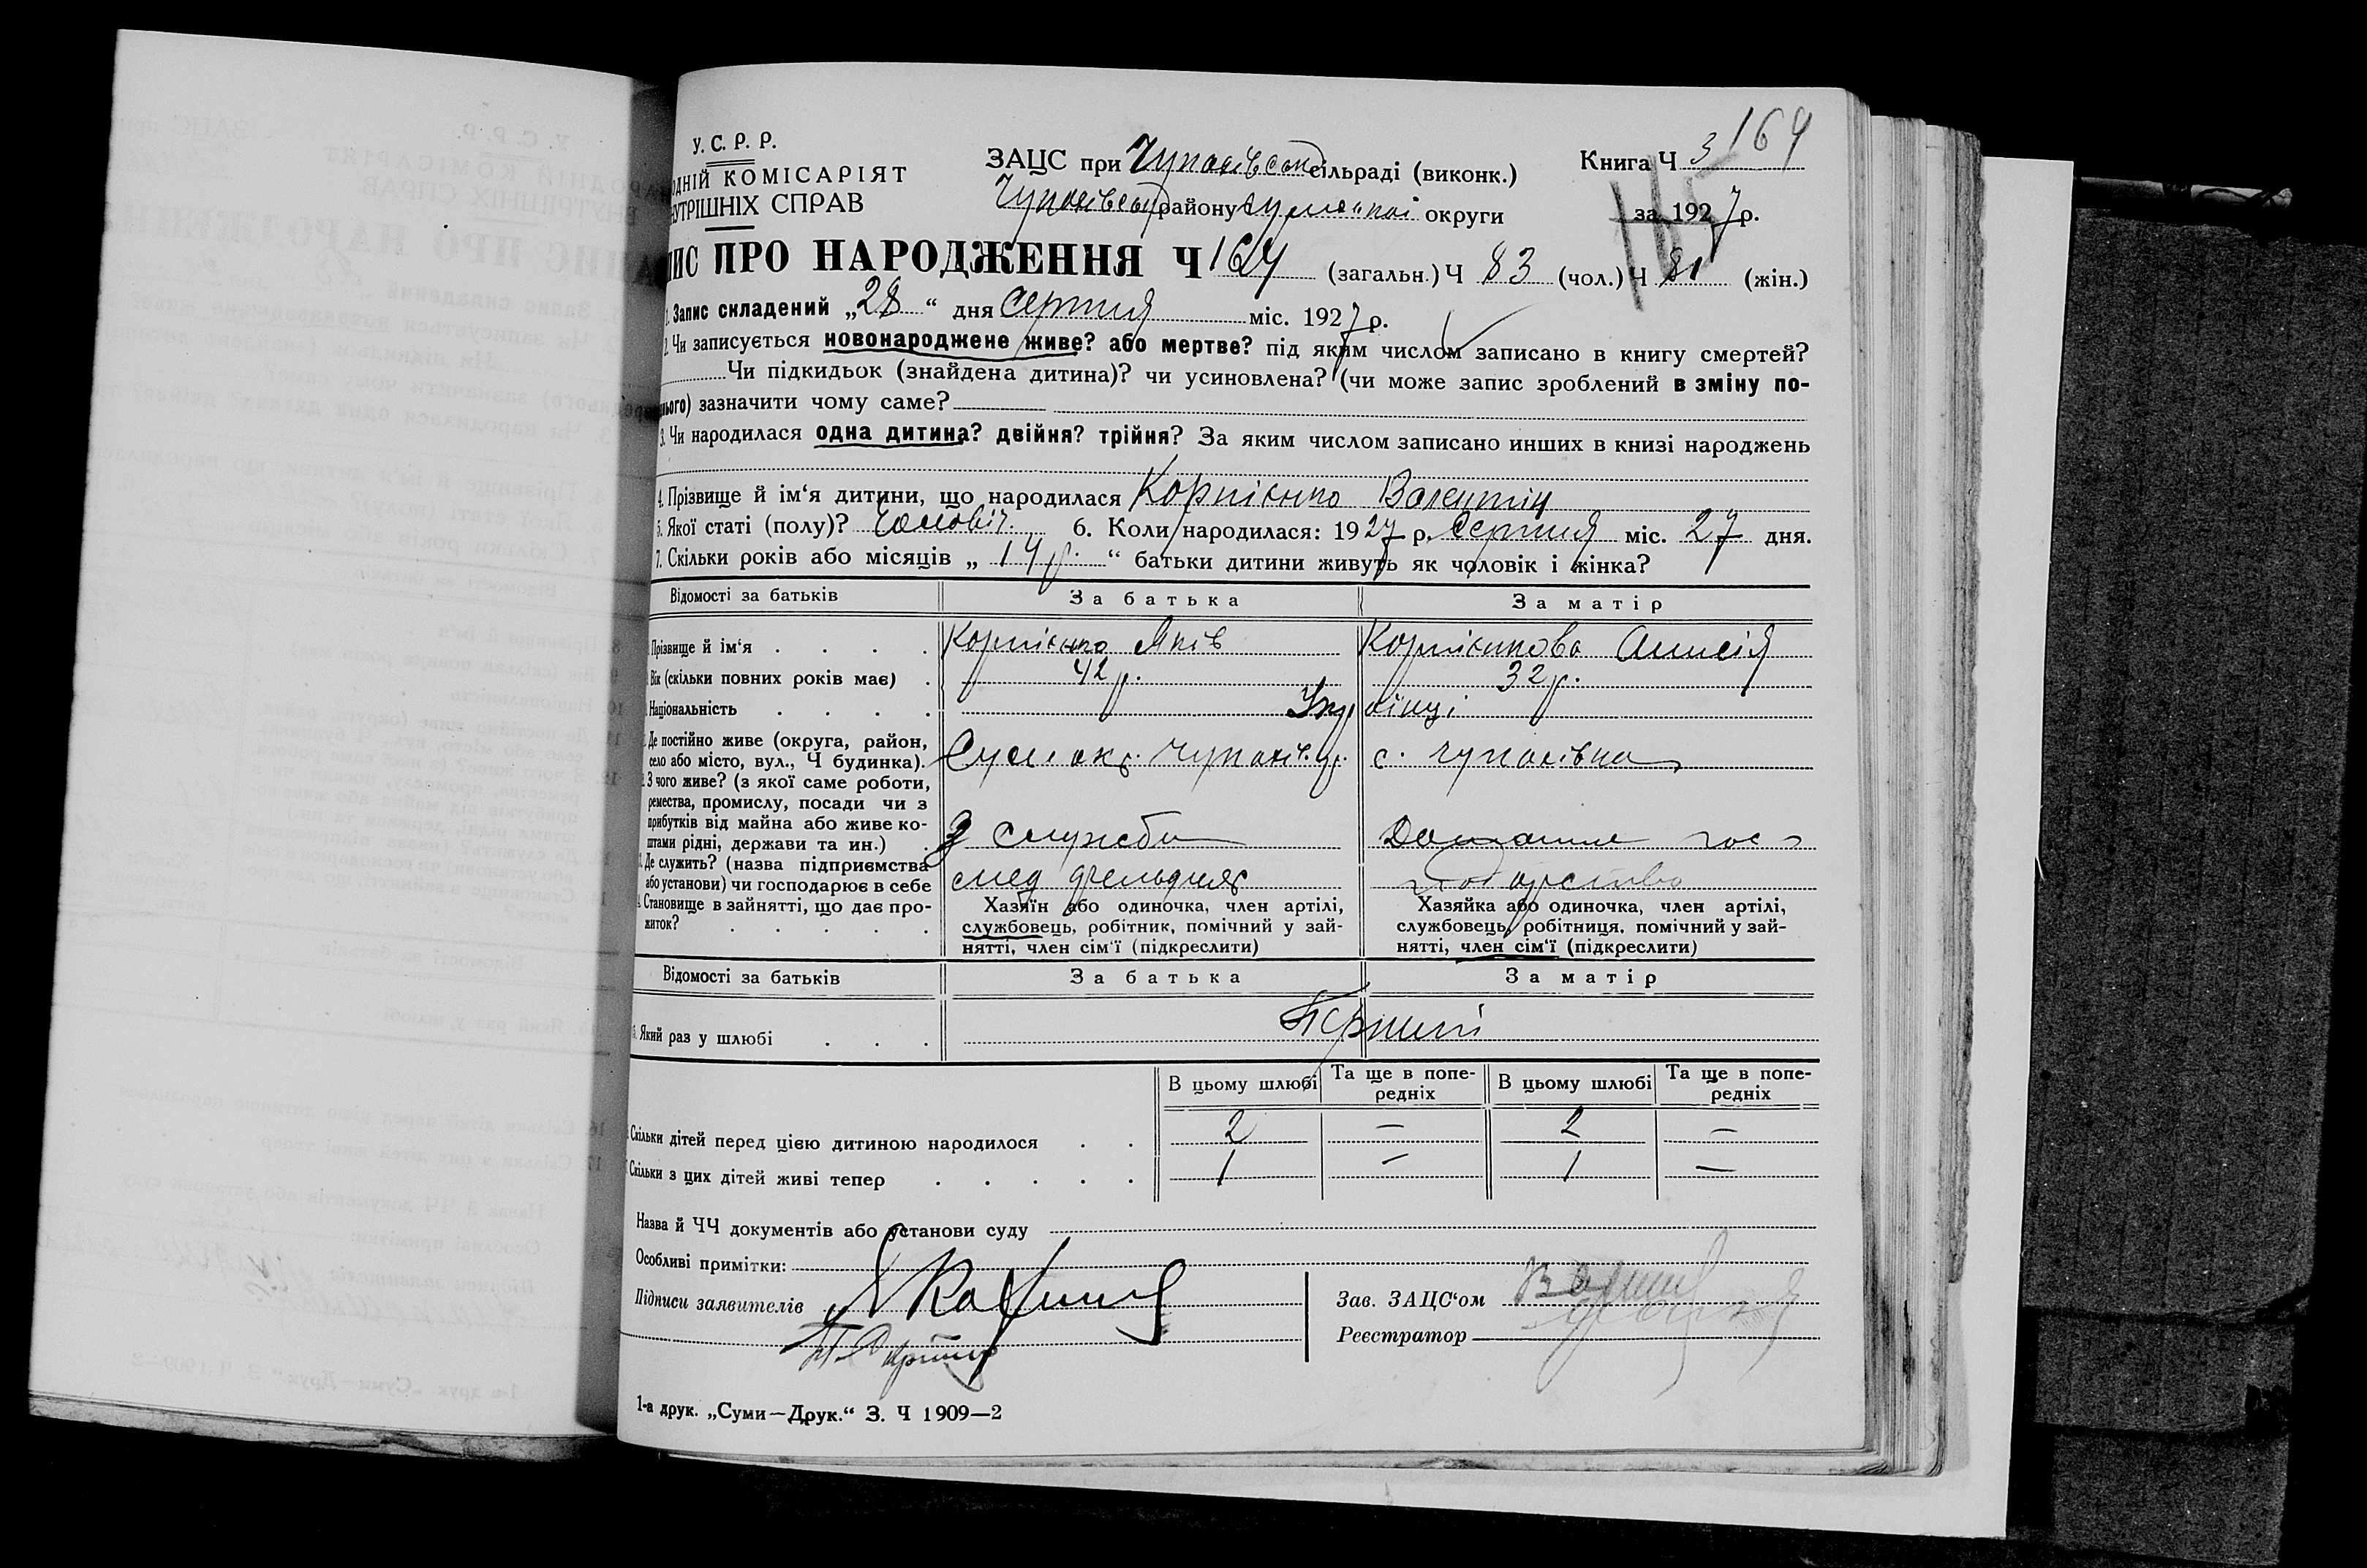 164
У. С. Р. Р.
ЗАЦС при Чупахівськ сільраді (виконк.) Книга Ч 3
ОДНІЙ КОМІСАРІЯТ
УТРІШНІХ СПРАВ
Чупахівськ району Сумської округи за 1927 р.
ПИС ПРО НАРОДЖЕННЯ Ч 164 (загальн.) Ч 83 (чол.) Ч 81 (жін.)
1. Запис складений „28“ дня Серпня міс. 1927 р.
2. Чи записується новонароджене живе? або мертве? під яким числом записано в книгу смертей?
Чи підкидьок (знайдена дитина)? чи усиновлена? (чи може запис зроблений в зміну по-
нього) зазначити чому саме?
3. Чи народилася одна дитина? двійня? трійня? За яким числом записано инших в книзі народжень
4. Прізвище й ім‘я дитини, що народилася Корнієнко Валентин
5. Якої статі (полу)? Чоловіч. 6. Коли народилася: 1927 р. Серпня міс. 27 дня.
7. Скільки років або місяців „ 14 р. “ батьки дитини живуть як чоловік і жінка?
Відомості за батьків За батька За матір
Прізвище й ім‘я Корнієнко Яків Корнієнкова Анисія
Вік (скільки повних років має) 42 р. 32 р.
Національність Українці
Де постійно живе (округа, район,
село або місто, вул., Ч будинка). Сум. окр. Чупахів. р. с. Чупахівка
2. З чого живе? (з якої саме роботи,
ремества, промислу, посади чи з
прибутків від майна або живе ко-
штами рідні, держави та ин.) З служби Домашнє гос
3. Де служить? (назва підприємства
або установи) чи господарює в себе подарство
Становище в зайнятті, що дає про-
житок?
Хазяїн або одиночка, член артілі,
службовець, робітник, помічний у зай-
нятті, член сім‘ї (підкреслити)
Хазяйка або одиночка, член артілі,
службовець, робітниця, помічний у зай-
нятті, член сім‘ї (підкреслити)
Відомості за батьків За батька За матір
Який раз у шлюбі Перший
В цьому шлюбі Та ще в попе- В цьому шлюбі Та ще в попе-
редніх редніх
Скільки дітей перед цією дитиною народилося 2 — 2 —
Скільки з цих дітей живі тепер 1 — 1 —
Назва й ЧЧ документів або установи суду
Особливі примітки:
Підписи заявителів
Зав. ЗАЦС‘ом
Реєстратор
1-а друк. „Суми—Друк.“ З. Ч 1909—2